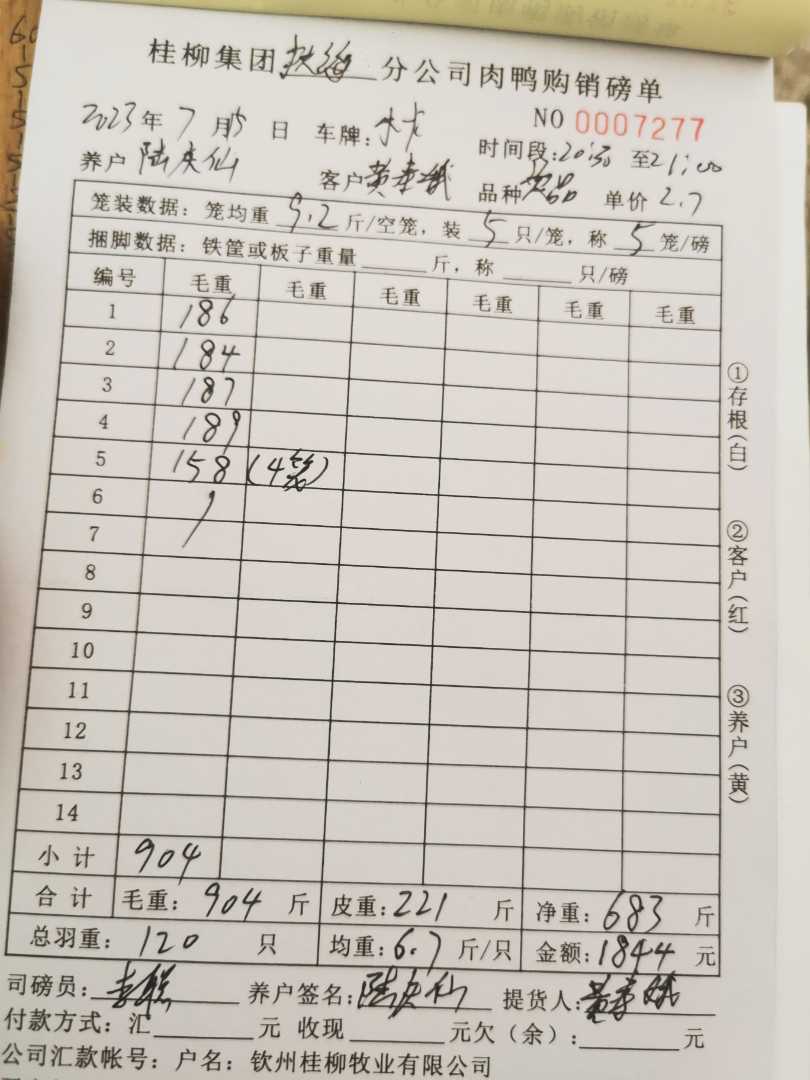 桂柳集团 分公司肉鸭购销磅单
NO 0007277
2023年 7 月 5 日 车牌:
时间段:20:30 至21:00
养户 陆庆仙 客户 品种 单价 2.7
笼装数据：笼均重 9.2 斤/空笼，装 5 只/笼，称 5 笼/磅
捆脚数据：铁筐或板子重量 斤，称 只/磅
编号 毛重 毛重 毛重 毛重 毛重 毛重
1 186
2 184
3 187
4 189
5 158 (4笼)
6
7
8
9
10
11
12
13
14
小 计 904
合 计 毛重：904 斤 皮重：221 斤 净重：683 斤
总羽重：120 只 均重：6.7 斤/只 金额：1844 元
司磅员： 养户签名：陆庆仙 提货人：
付款方式：汇 元 收现 元欠（余）： 元
公司汇款帐号：户名：钦州桂柳牧业有限公司
①存根(白)
②客户(红)
③养户(黄)